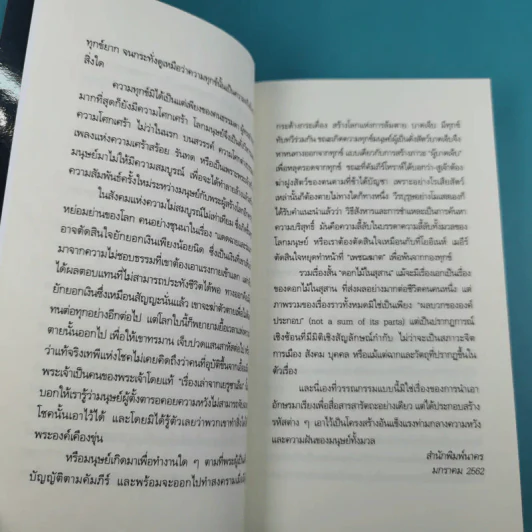 ทุกข์ยาก จนกระทั่งดูเหมือนว่าความทุกข์นั้นเป็นความ
สิ่งใด
ความทุกข์มิได้เป็นแต่เพียงของคนธรรมดา
มากที่สุดก็ยังมีความโศกเศร้า โลกมนุษย์จึงเป็น
ความโศกเศร้า ไม่ว่าในนรก บนสวรรค์ ความโศก
เพลงแห่งความเศร้าสร้อย รันทด หรือเป็นเพราะพระเจ้า
มนุษย์มาไม่ให้มีความสมบูรณ์ เพื่อจะได้ทำลายล้าง
ความสัมพันธ์ครั้งใหม่ระหว่างมนุษย์กับพระผู้สร้าง
ในสังคมแห่งความไม่สมบูรณ์ไม่เท่าเทียม ซึ่งเกิดขึ้น
หย่อมย่านของโลก คนอย่างชุนเนาในเรื่อง
อาจตัดสินใจยักยอกเงินเพียงน้อยนิด ซึ่งเป็นเงิน
มาจากความไม่ชอบธรรมที่เขาต้องเอาแรงกายเข้าแลก แต่
ได้ผลตอบแทนที่ไม่สามารถประทังชีวิตได้พอ
ยักยอกเงินซึ่งเหมือนสัญญะนั้นแล้ว เขาจะฆ่าตัวตาย
ทนต่อทุกอย่างอีกต่อไป แต่โลกใบนี้ก็พยายามยื้อ
ตายนั้นออกไป เพื่อให้เขาทรมาน เจ็บปวดแสนสาหัสต่อไป
ว่าแท้จริงเทพีแห่งโชคไม่เคยคิดถึงว่าคนที่อุบัติขึ้น
พระเจ้าเป็นคนของพระเจ้าโดยแท้ "เรื่องเล่าจากเยรูซาเล็ม"
บอกให้เรารู้ว่ามนุษย์ผู้ตั้งตารอคอยความหวังไม่สามารถ
โชคนั้นเอาไว้ได้ และโดยมิได้รู้ตัวเลยว่าพวกเขากำลัง
พระองค์เคืองขุ่น
หรือมนุษย์เกิดมาเพื่อทำงานใด ๆ ตามที่พระผู้เป็น
บัญญัติตามคัมภีร์ และพร้อมจะออกไปทำสงคราม
กระด้างกระเดื่อง สร้างโลกแห่งการล้มตาย บาดเจ็บ มีทุกข์
ทับทวีร่วมกัน ขณะเกิดความทุกข์มนุษย์ผู้เป็นดั่งสัตว์บาดเจ็บจึง
หาหนทางออกจากทุกข์ แบบเดียวกับการสร้างภาวะ "ผู้บาดเจ็บ"
เพื่อหลุดรอดจากทุกข์ ขณะที่คัมภีร์โทราห์ได้บอกว่า-สูเจ้าต้อง
ฆ่าฝูงสัตว์ของตนตามที่ข้าได้บัญชา เพราะอย่างไรเสียสัตว์
เหล่านี้ก็ต้องตายไม่ทางใดก็ทางหนึ่ง วีรบุรุษอย่างโมเสสเองก็
ได้รับคำแนะนำแล้วว่า วิธีสังหารและการชำแหละเป็นการค้นหา
ความบริสุทธิ์ มันคือความลี้ลับในบรรดาความลี้ลับทั้งมวลของ
โลกมนุษย์ หรือเราต้องตัดสินใจเหมือนกับที่โยอีเนห์ เมอีร์
ตัดสินใจหยุดทำหน้าที่ "เพชฌฆาต" เพื่อพ้นจากกองทุกข์
รวมเรื่องสั้น "ดอกไม้ในสุสาน" แม้จะมีเรื่องเอกเป็นเรื่อง
ของดอกไม้ในสุสาน ที่ส่งผลอย่างมากต่อชีวิตคนคนหนึ่ง แต่
ภาพรวมของเรื่องราวทั้งหมดมิใช่เป็นเพียง "ผลบวกขององค์
ประกอบ" (not a sum of its parts) แต่เป็นปรากฏการณ์
เชิงซ้อนที่มีมิติเชิงสัญลักษณ์กำกับ ไม่ว่าจะเป็นสภาวะจิต
การเมือง สังคม บุคคล หรือแม้แต่ฉากและวัตถุที่ปรากฏขึ้นใน
ตัวเรื่อง
และนี่เองที่วรรณกรรมแบบนี้มิใช่เรื่องของการนำเอา
อักษรมาเรียงเพื่อสื่อสารสารัตถะอย่างเดียว แต่ได้ประกอบสร้าง
รหัสต่าง ๆ เอาไว้เป็นโครงสร้างอันแข็งแรงท่ามกลางความหวัง
และความฝันของมนุษย์ทั้งมวล
สำนักพิมพ์นาคร
มกราคม 2562